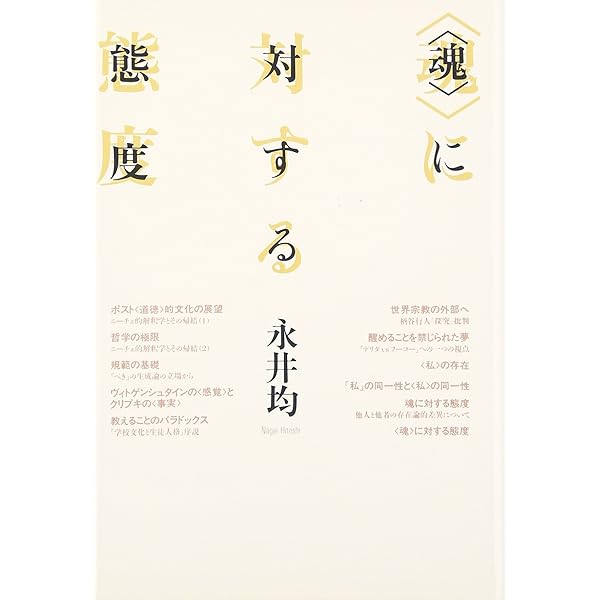 〈魂〉に
対する
態度
永井均
Nagai Hitoshi
世界宗教の外部へ
柄谷行人『探究』批判
醒めることを禁じられた夢
「デリダvsフーコー」への一つの視点
〈私〉の存在
「私」の同一性と〈私〉の同一性
魂に対する態度
他人と他者の存在論的差異について
〈魂〉に対する態度
ポスト〈道徳〉的文化の展望
ニーチェ的解釈学とその帰結(1)
哲学の極限
ニーチェ的解釈学とその帰結(2)
規範の基礎
「べき」の生成論の立場から
ヴィトゲンシュタインの〈感覚〉と
クリプキの〈事実〉
教えることのパラドックス
「学校文化と生徒人格」序説